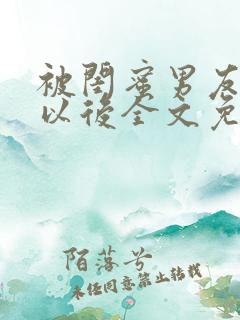 被閨蜜男友
以後全文免
陌落兮
未任同意禁止转载